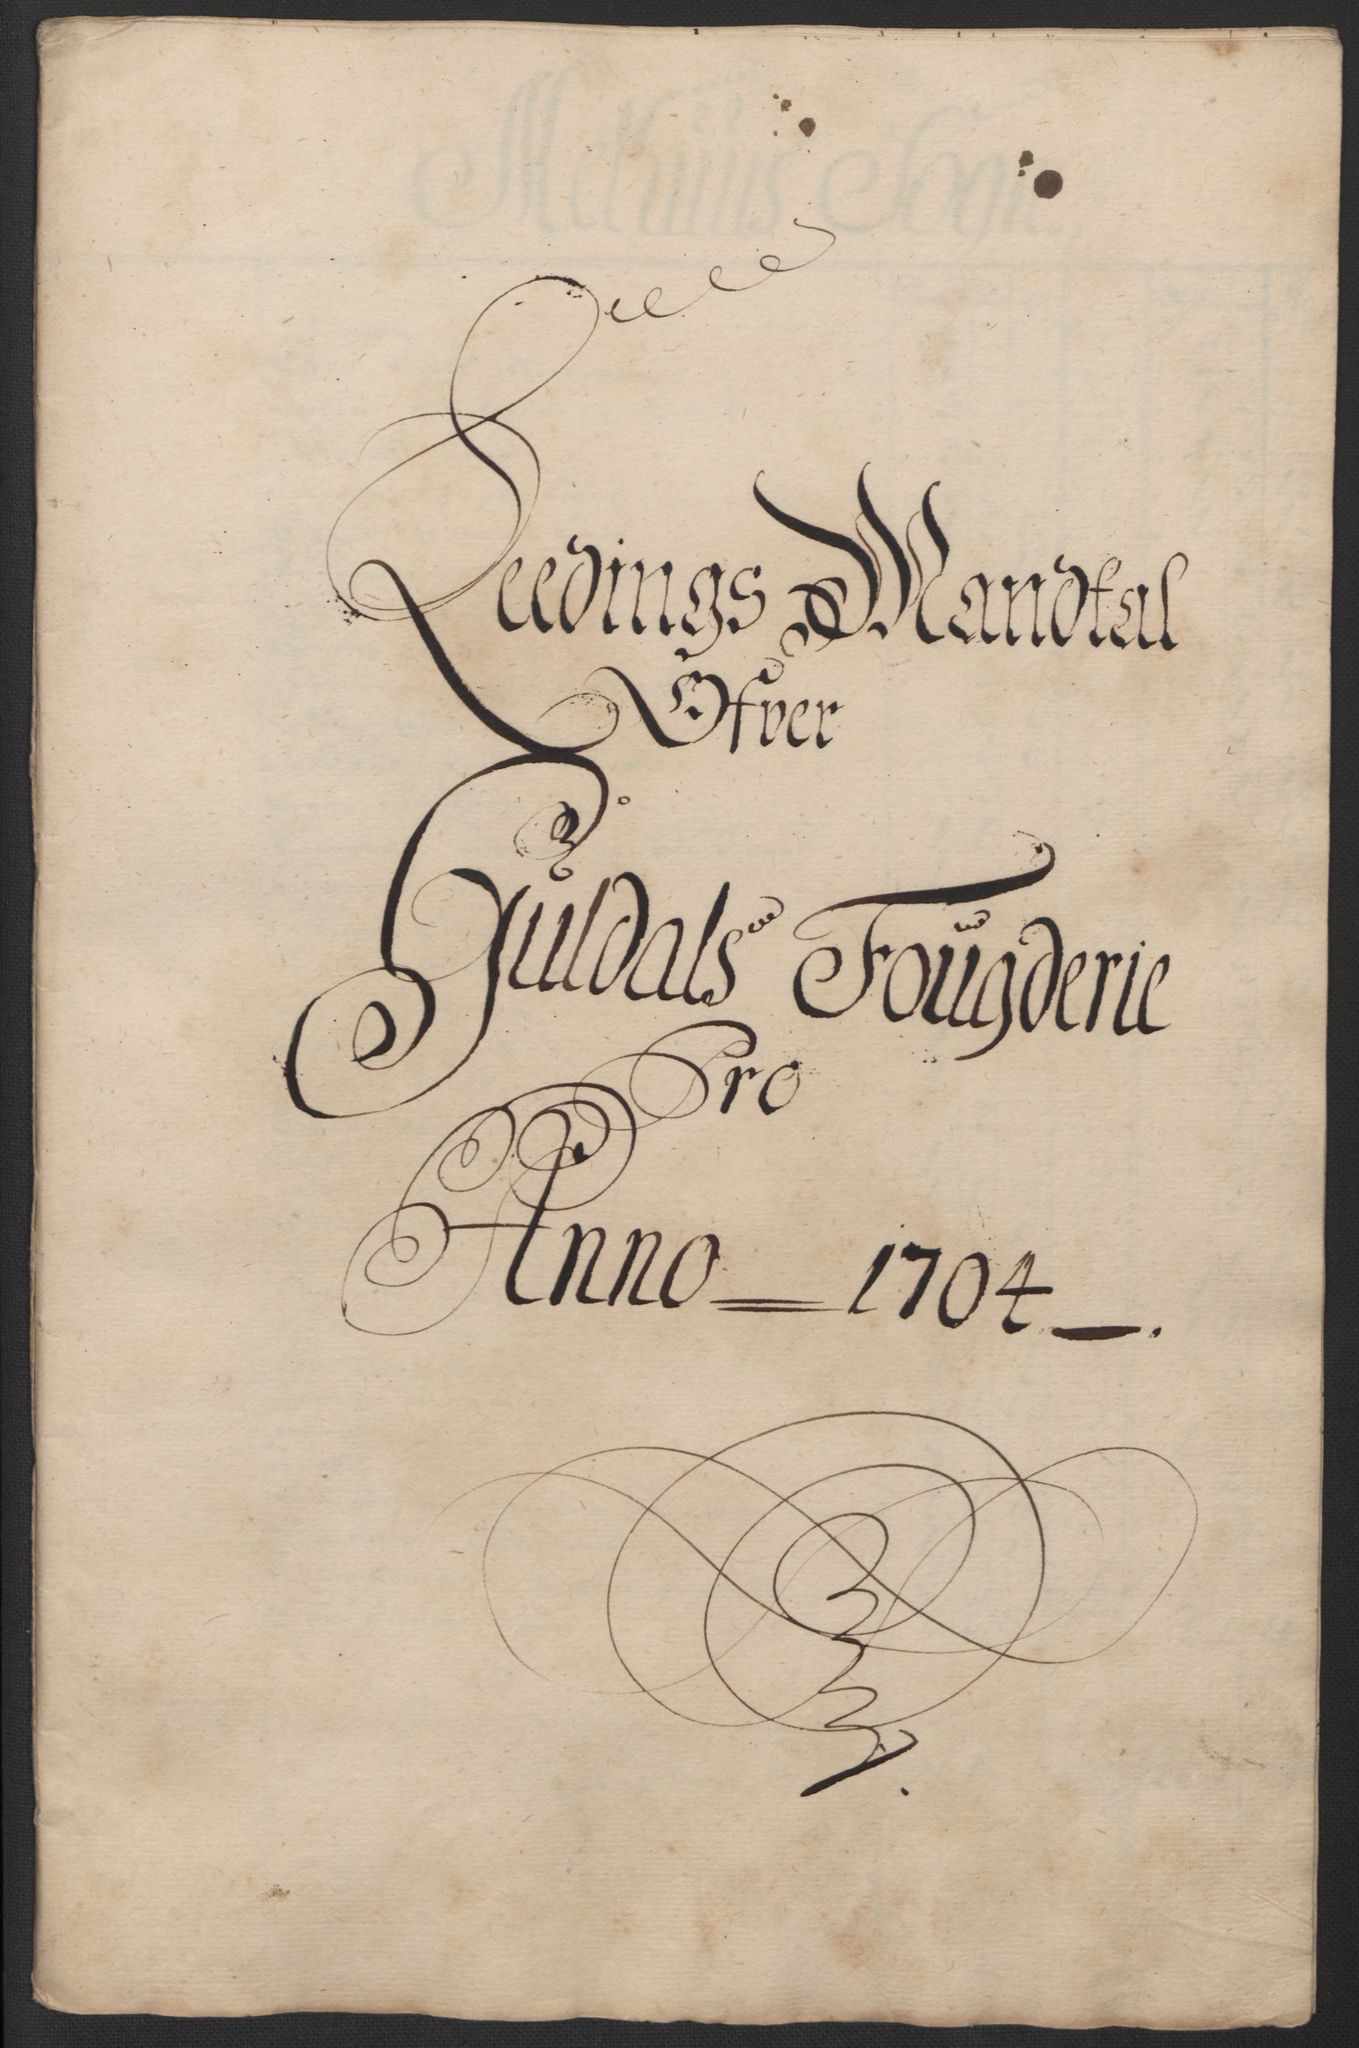 Leedings Mandtal
Ofver
Guldals Fougderie
Pro
Anno 1704